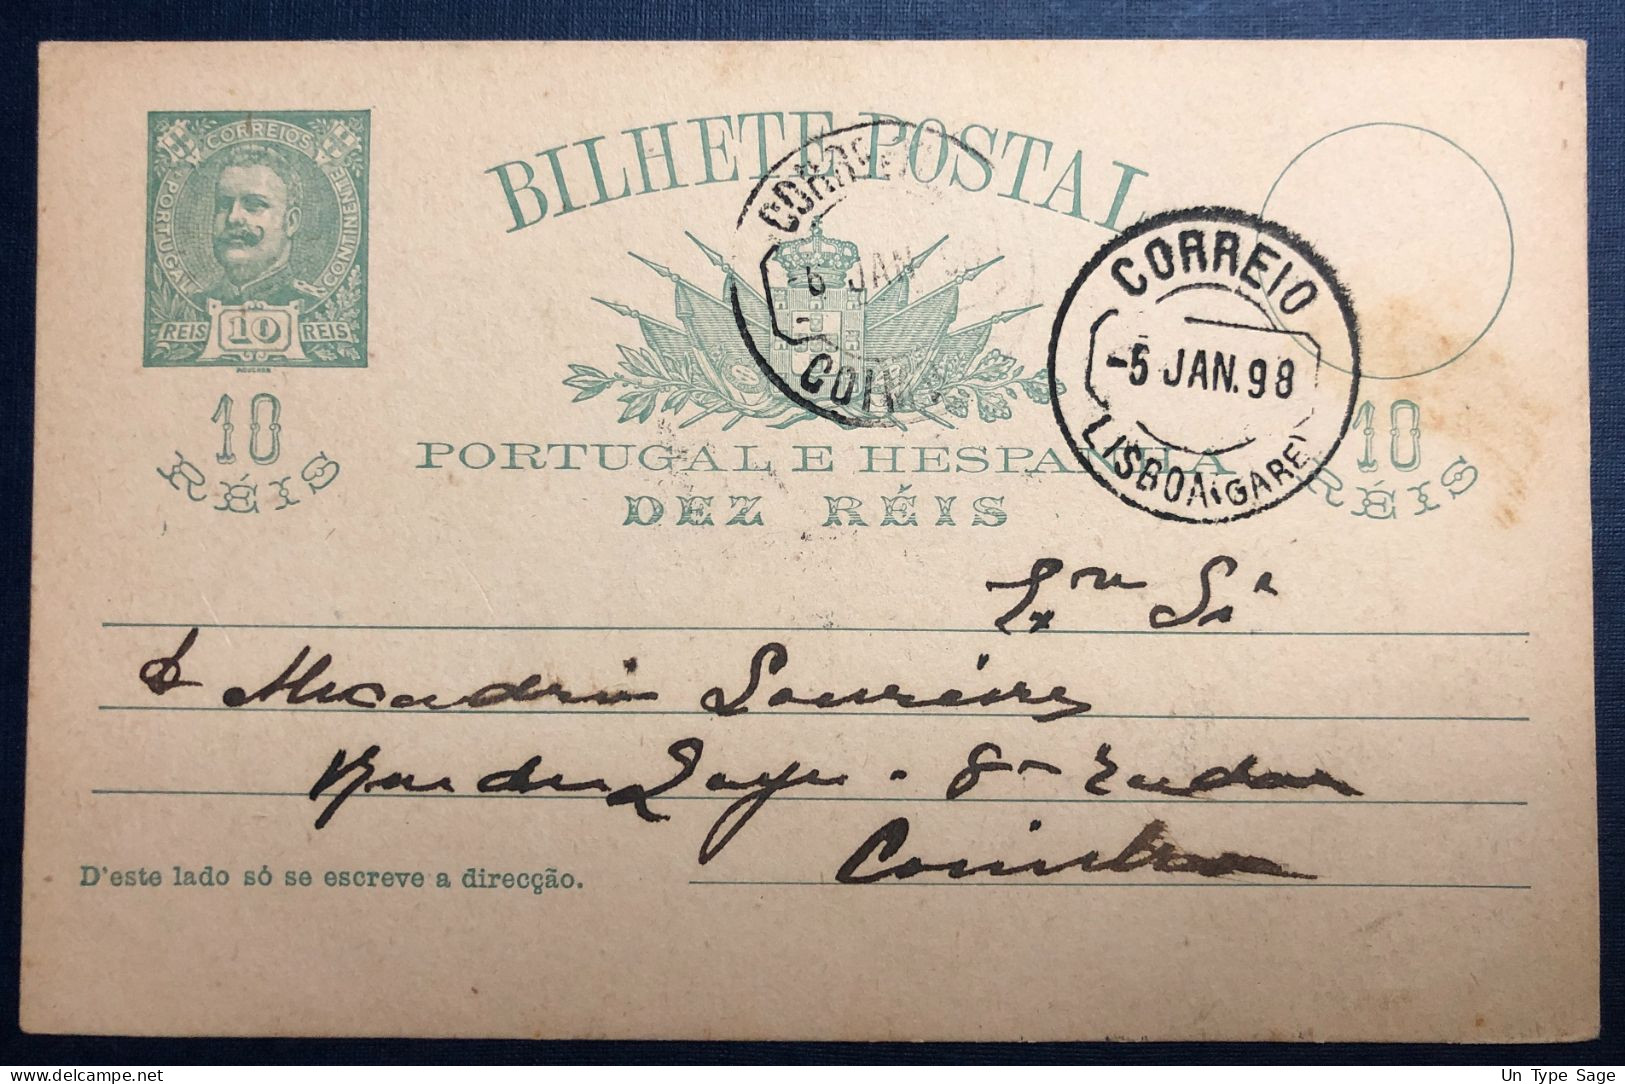 CORREIOS
PORTUGAL
CONTINENTE
REIS 10 REIS
MOUCHON
10
RÉIS
BILHETE POSTAL
CORREIO
-6 JAN
COIM
CORREIO
-5 JAN. 98
LISBOA (GARE)
10
RÉIS
PORTUGAL E HESPANHA
DEZ RÉIS
Exma Sra
D. Alexandrina Loureiro
Coimbra
D'este lado só se escreve a direcção.
Un Type Sage